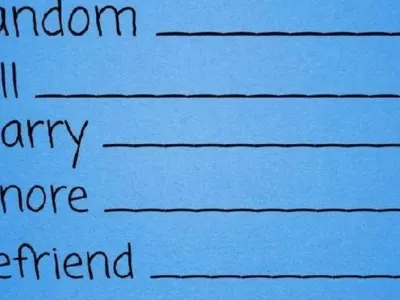 andom
ll
arry
nore
efriend